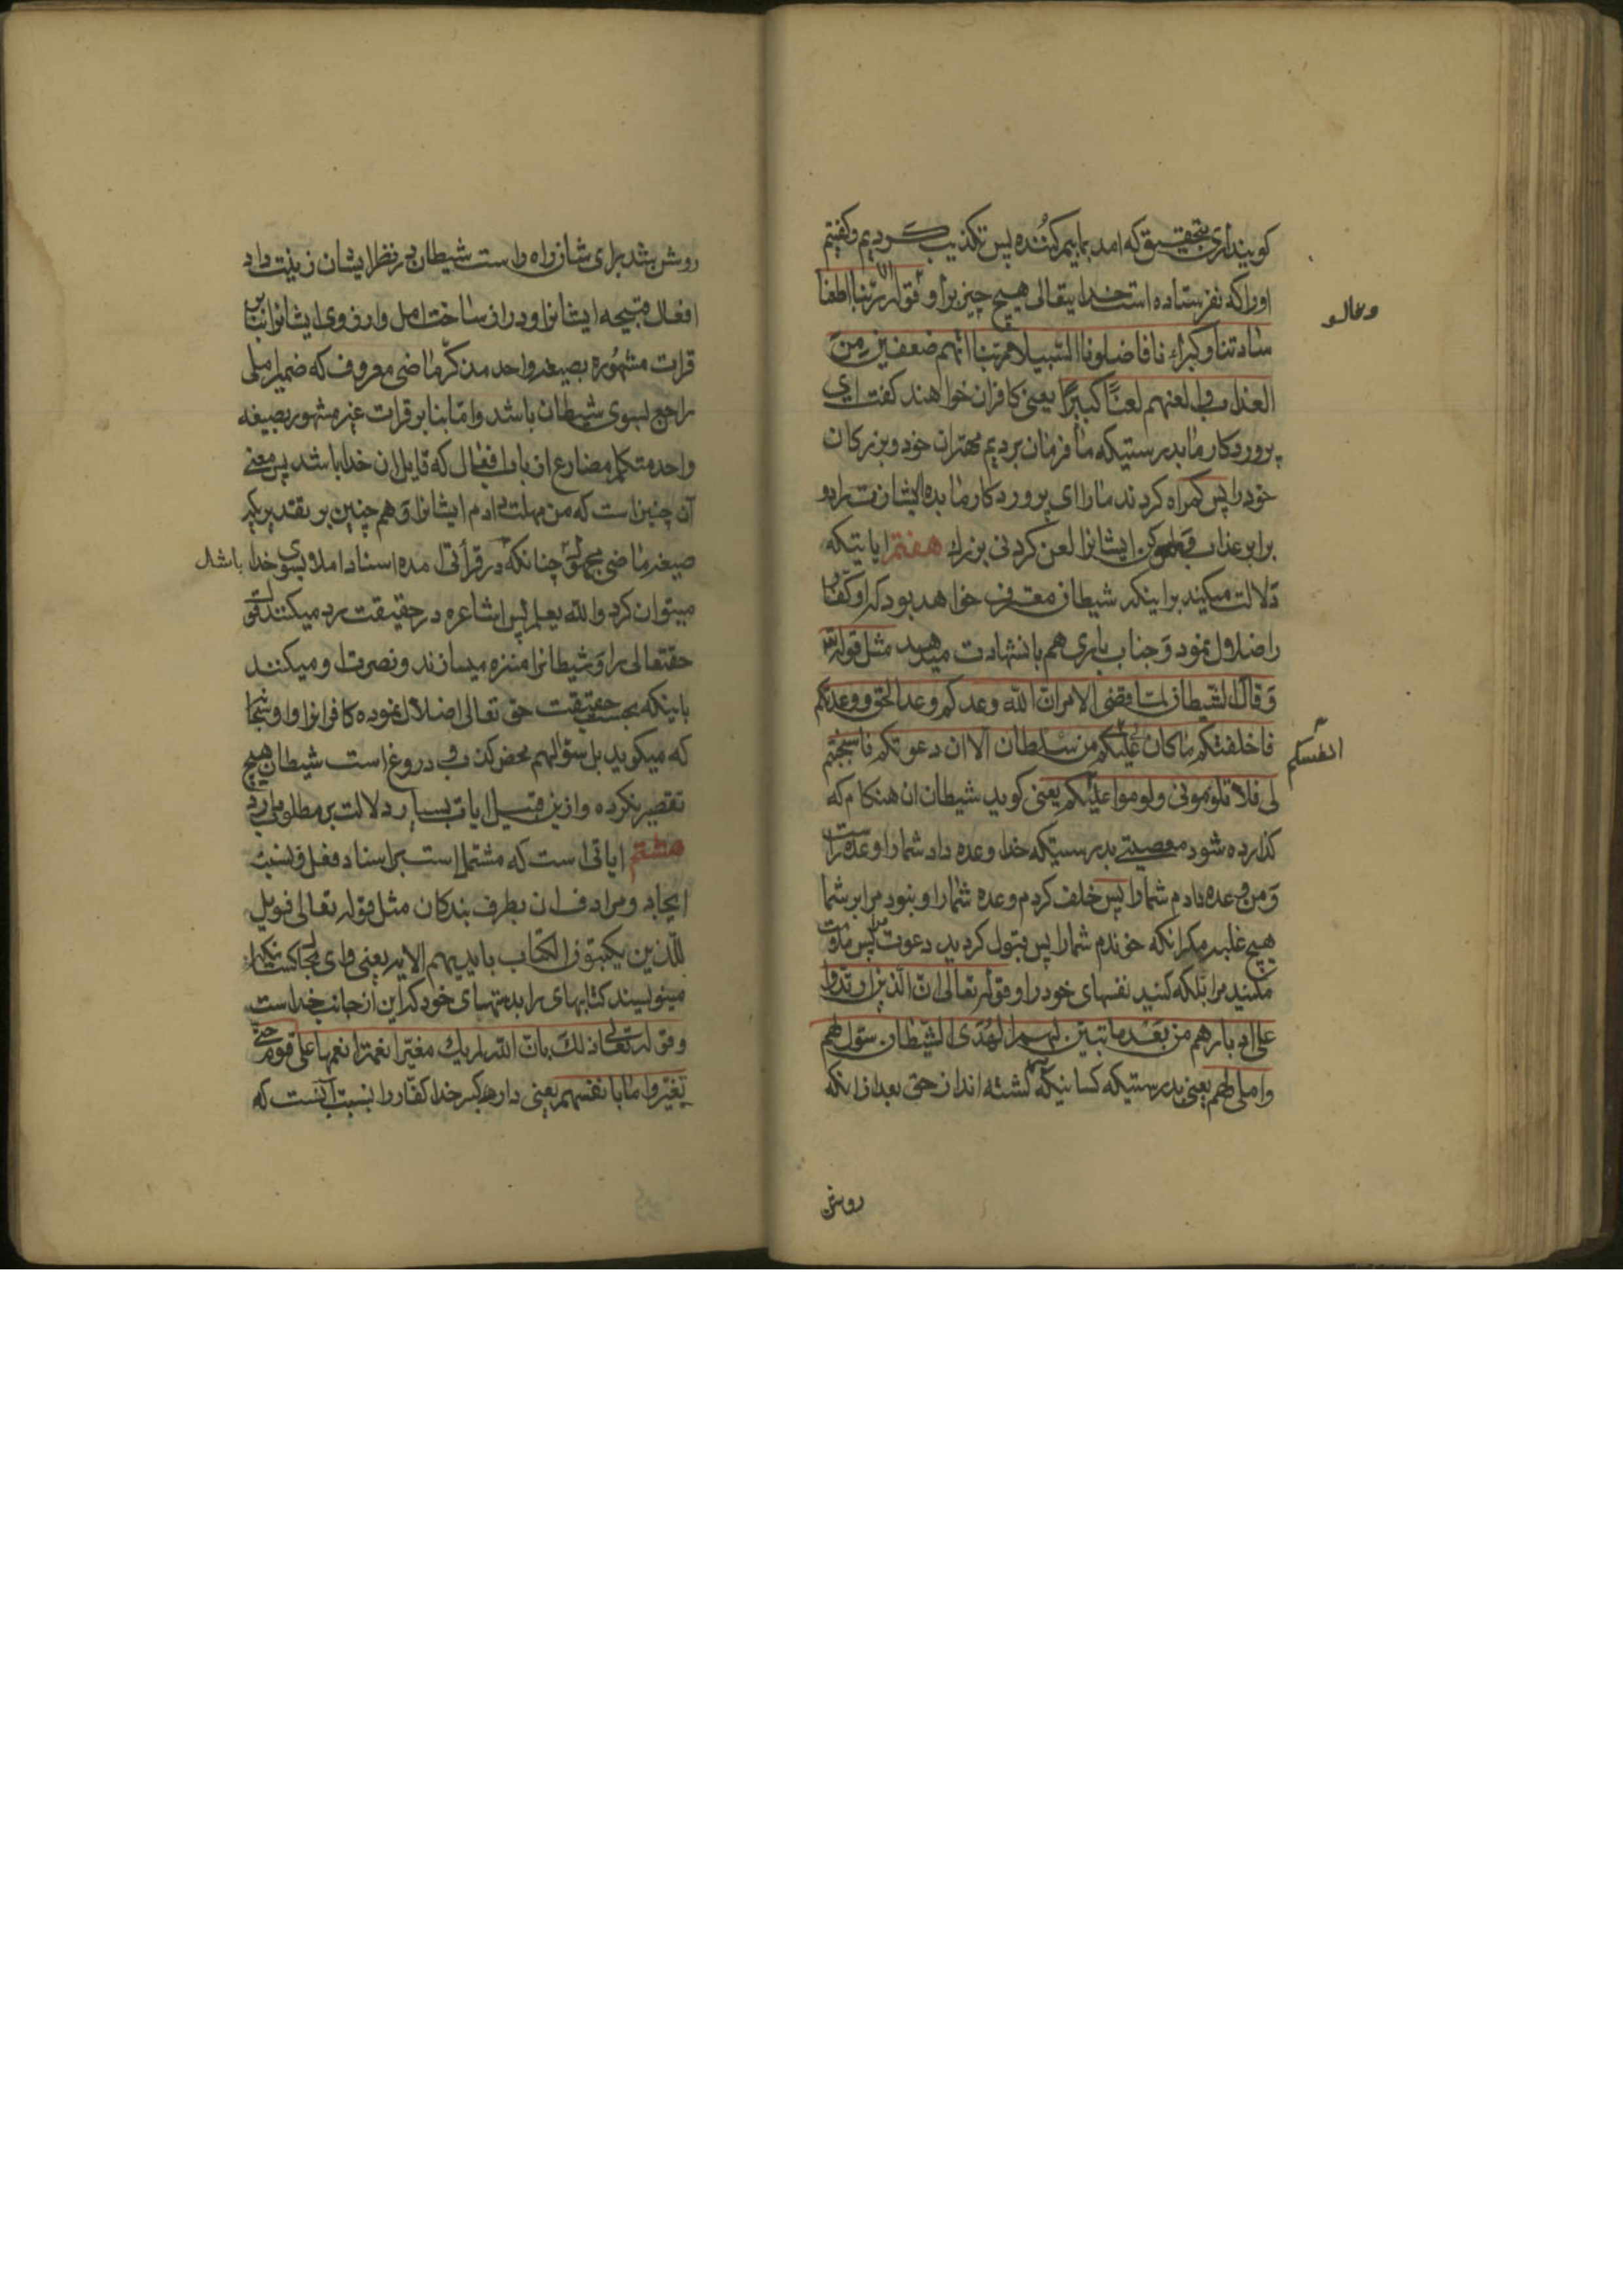 کویندآری بتحقیق که امد بما بیم کننده پس تکذیب کردیم و کفتیم
اورا که نفرستاده است خدایتعالی هیچ چیز برا و قوله ربنا اطعنا
وقالو
سادتنا وکبراءنا فاضلونا السبیلا ربنا اتهم ضعفین من
العذاب والعنهم لعنًا کبیرًا یعنی کافران خواهند کفت ای
پروردکار ما بدرستیکه ما فرمان بردیم مهتران خود و بزرکان
خود را پس کمراه کردند ما را ای پروردکار ما بده ایشانرا دو
برابر عذاب و کن ایشانرا لعن کردنی بزرک هفتم ایاتیکه
دلالت میکند بر اینکه شیطان معترف خواهد بود که او کفار
را ضلال نمود و جناب باری هم باینشهادت میدهد مثل قوله
وقال الشیطان لما قضی الامر ان الله وعدکم وعد الحق ووعدتکم
فاخلفتکم ما کان لی علیکم من سلطان الا ان دعوتکم فاستجبتم
انفسکم
لی فلا تلومونی ولوموا یعنی کوید شیطان ان هنکام که
کذارده شود معصیتی بدرستیکه خدا وعده داد شما را وعده راست
ومن وعده دادم شما را پس خلف کردم وعده شما را و نبود مرا بر شما
هیچ غلبه مکر انکه خوندم شما را پس قبول کردید دعوت مرا پس ملامت
مکنید مرا بلکه کنید نفسهای خود را و قوله تعالی ان الذین ارتدوا
علی ادبارهم من بعد ما تبین لهم الهدی الشیطان سول لهم
واملی لهم یعنی بدرستیکه کسانیکه کشته اند از حق بعد از انکه
روشن
روشن شد برای شان راه راست شیطان در نظر ایشان زینت داد
افعال قبیحه ایشانرا و دراز ساخت امل و ارزوی ایشانرا بنابر
قرات مشهوره بصیغه واحد مذکر ماضی معروف که ضمیر املی
راجع بسوی شیطان باشد و اما بنا بر قرات غیر مشهور بصیغه
واحد متکلم مضارع از باب افعال که قایل ان خدا باشد پس معنی
آن چنین است که من مهلت دادم ایشانرا و هم چنین بر تقدیریکه
صیغه ماضی مجهول باشد چنانکه در قرأتی امده اسناد املا بسوی خدا
میتوان کرد والله یعلم پس اشاعره در حقیقت رد میکنند قول
حقتعالی را و شیطانرا منزه میسازند و نصرت او میکنند
باینکه بحسب حقیقت حق تعالی اضلال نموده کافرانرا و او
که میکوید بل سوّل لهم محض کذب و دروغ است شیطان هیچ
تقصیر نکرده و ازین قبیل ایات بسیار دلالت بر مطلوب دارد
هشتم ایاتی است که مشتمل است بر اسناد فعل و نسبت
ایجاد و مراد ف ان بطرف بندکان مثل قوله تعالی فویل
للذین یکتبون الکتاب بایدیهم الایه یعنی وای کسانیکه
مینویسند کتابهای را بدستهای خود که این از جانب خداست
وقوله تعالی ذلک بان الله لم یک مغیرا نعمة انعمها علی قوم حتی
یغیروا ما بانفسهم یعنی خدا کفار را بسبب آنست که